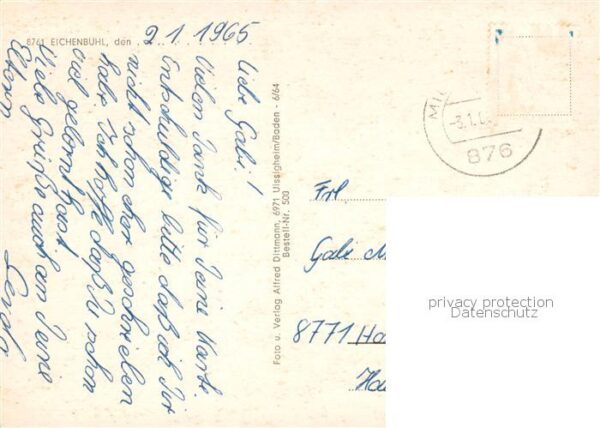 8761 EICHENBÜHL, den 2 1 1965
Liebe Gabi!
Vielen Dank für Deine Karte
Entschuldige bitte daß ich Dir
nicht schon eher geschrieben
habe. Ich hoffe daß Du schon
viel gelernt hast.
Viele Grüße auch an Deine
Eltern
Foto u. Verlag Alfred Dittmann, 6971 Uissigheim/Baden - 6/64
Bestell-Nr. 503
-3.1.6
876
Frl.
Gabi M
8771 Ha
Ha
privacy protection
Datenschutz